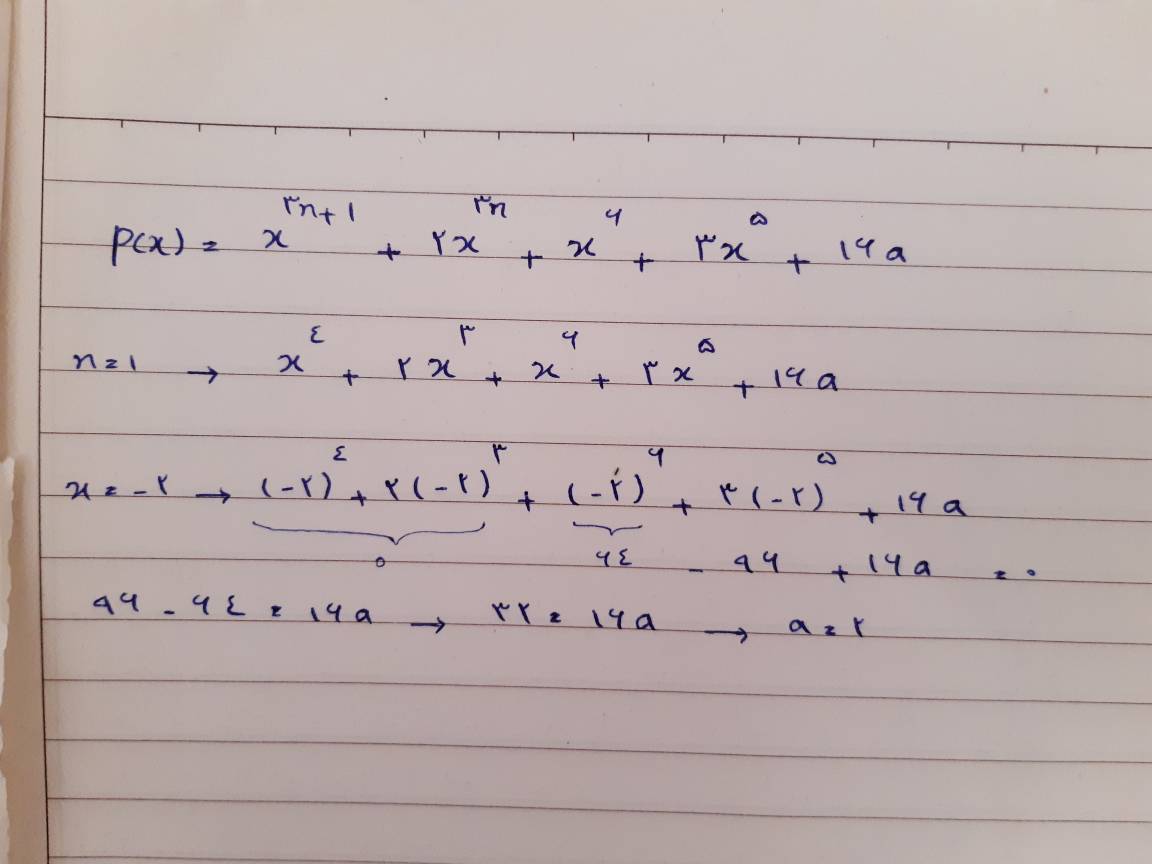 p(x) = x^{۳n+۱} + ۲x^{۳n} + x^{۶} + ۳x^{۵} + ۱۶a
n=۱ → x^{٤} + ۲x^{۳} + x^{۶} + ۳x^{۵} + ۱۶a
x=-۲ → (-۲)^{٤} + ۲(-۲)^{۳} + (-۲)^{۶} + ۳(-۲)^{۵} + ۱۶a
۰ ۶٤ - ۹۶ + ۱۶a = ۰
۹۶ - ۶٤ = ۱۶a → ۳۲ = ۱۶a → a=۲